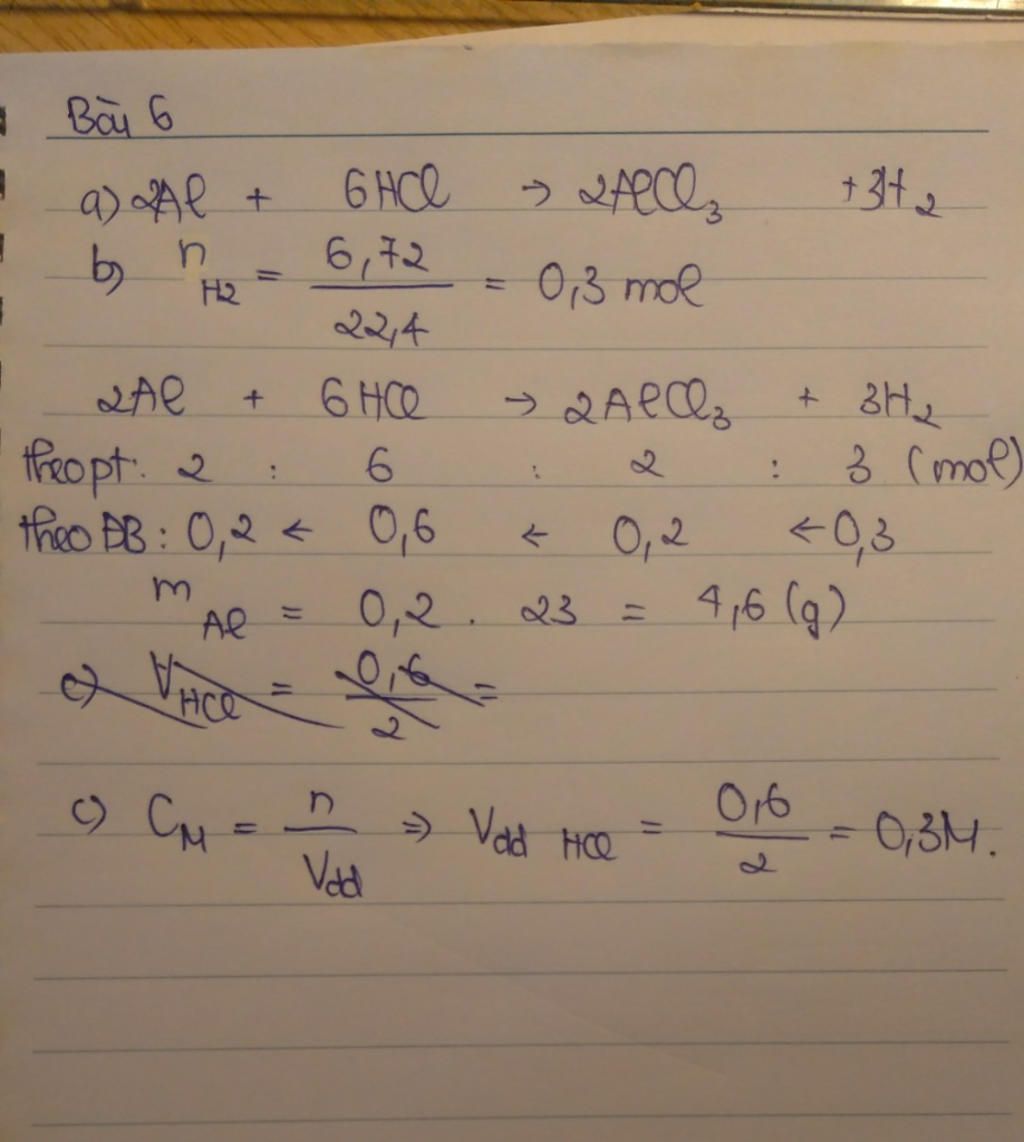 Bài 6
a) 2Al + 6HCl → 2AlCl₃ + 3H₂
b) n H2 = 6,72 / 22,4 = 0,3 mol
2Al + 6HCl → 2AlCl₃ + 3H₂
theo pt: 2 : 6 : 2 : 3 (mol)
theo ĐB: 0,2 ← 0,6 ← 0,2 ← 0,3
m Al = 0,2 . 23 = 4,6 (g)
c) V HCl = 0,6 / 2 =
c) C_M = n / Vdd ⇒ Vdd HCl = 0,6 / 2 = 0,3M.